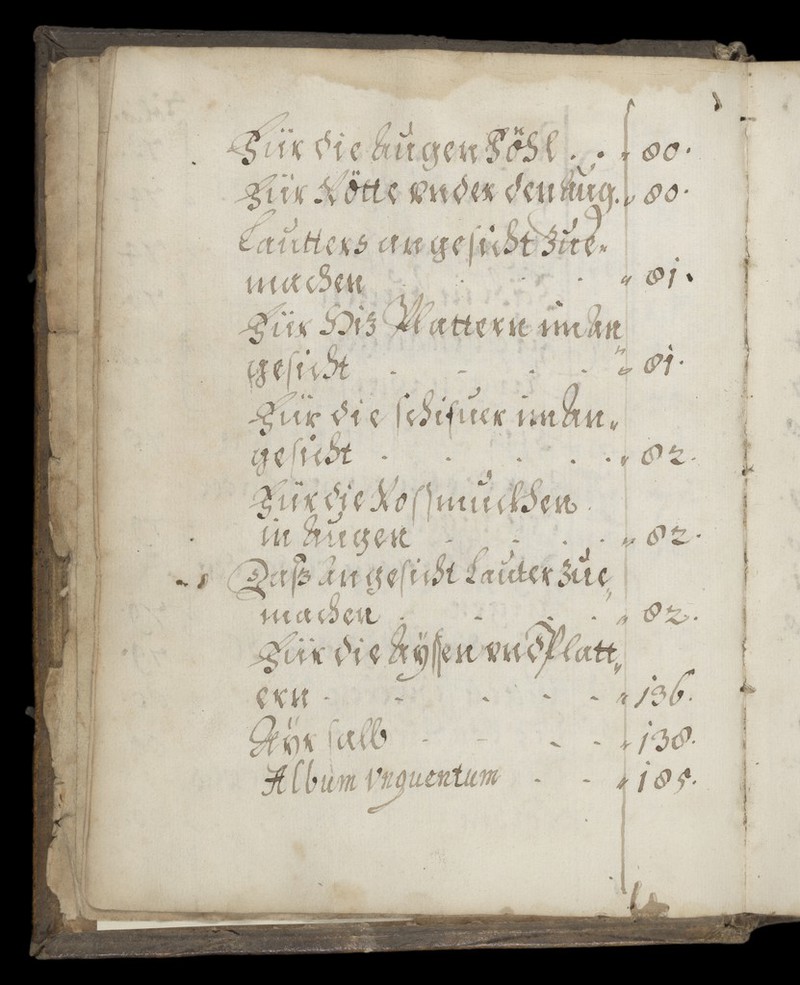 Für die Augen Föhl . . " 80.
Für Rötte vnder den Aug. " 80.
Lautters angesicht Zue-
machen . . . . " 81.
Für Hiz Plattern im An
gesicht - - - - " 81.
Für die schifuer im An"
gesicht - - - . . " 82.
Für die Rossmuckhen
in Augen - - - . " 82.
Daß Angesicht Lauter Zue"
machen . - - . " 82.
Für die Ayssen vnd Platt"
ern - - - - - " 136.
Ayr salb - - - - " 138.
Album Vnguentum - - " 185.